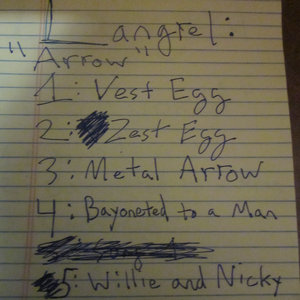 1 angrel:
"Arrow"
1: Vest Egg
2: Zest Egg
3: Metal Arrow
4: Bayoneted to a Man
5: Willie and Nicky